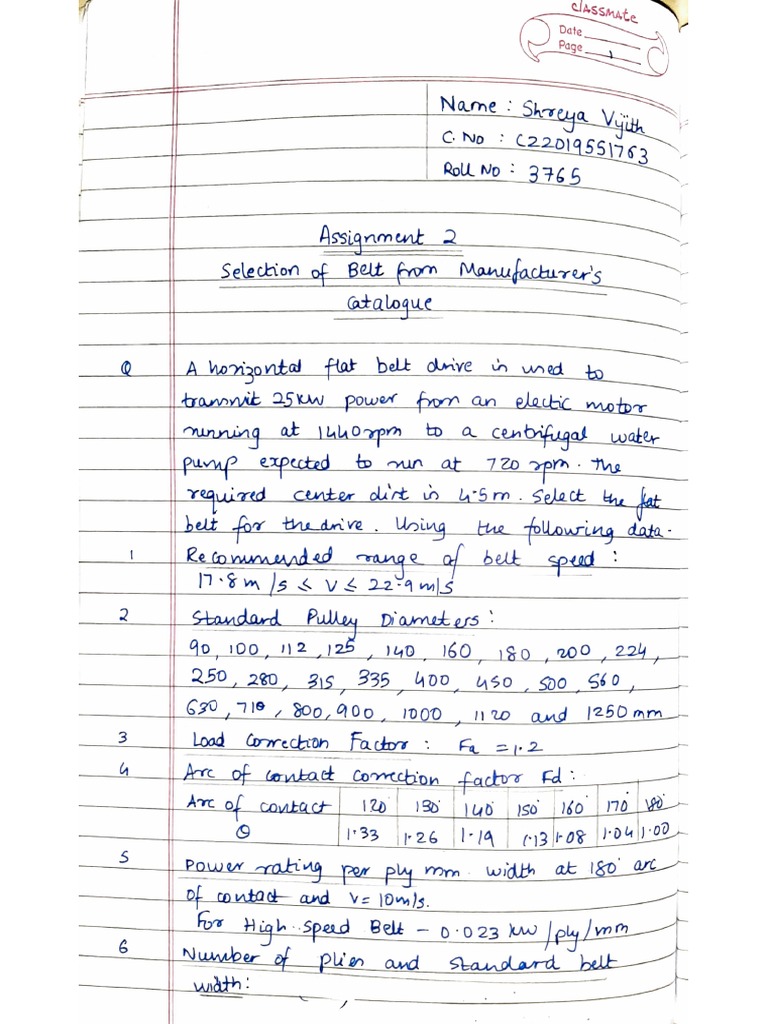 classmate
Date
Page 1
Name : Shreya Vijith
C.No : C22019551763
Roll No : 3765
Assignment 2
Selection of Belt from Manufacturer's
Catalogue
Q A horizontal flat belt drive is used to
transmit 25kW power from an electic motor
running at 1440rpm to a centrifugal water
pump expected to run at 720 rpm. The
required center dist is 4.5m. Select the flat
belt for the drive. Using the following data.
1 Recommended range of belt speed :
17.8m/s ≤ v ≤ 22.9m/s
2 Standard Pulley Diameters :
90, 100, 112, 125, 140, 160, 180, 200, 224,
250, 280, 315, 335, 400, 450, 500, 560,
630, 710, 800, 900, 1000, 1120 and 1250mm
3 Load Correction Factor : Fa = 1.2
4 Arc of contact correction factor Fd :
Arc of contact 120° 130° 140° 150° 160° 170° 180°
θ 1.33 1.26 1.19 1.13 1.08 1.04 1.00
5 Power rating per ply mm width at 180° arc
of contact and V= 10m/s.
For High Speed Belt - 0.023 kW/ply/mm
6 Number of plies and standard belt
width :